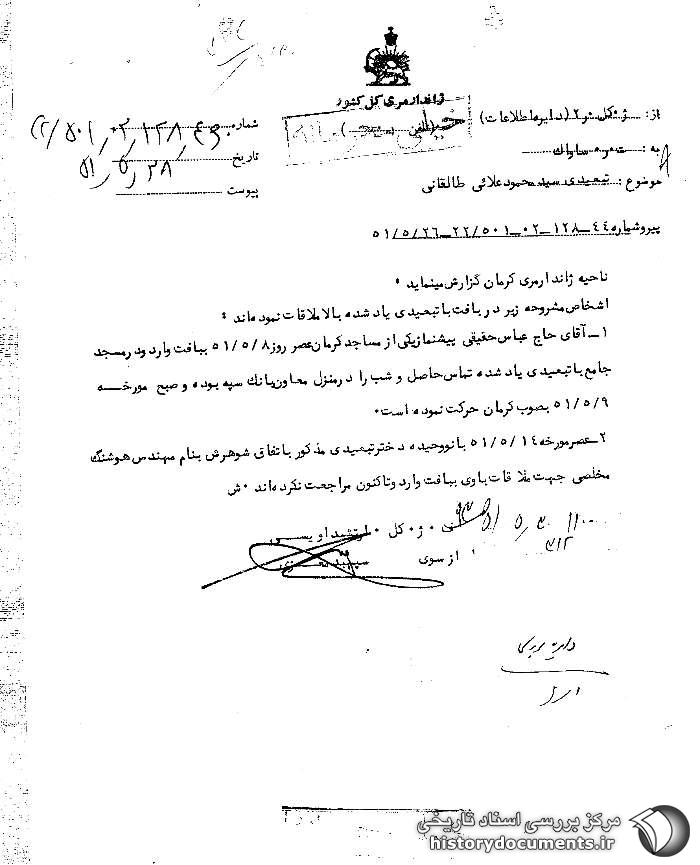 ژاندارمری کل کشور
از: ژ۰کل ر۲ (دایره اطلاعات)
به: ت۰ر۰ ساواک
موضوع: تبعیدی سید محمود علائی طالقانی
خیلی
شماره
تاریخ ۵۱/۵/۲۸
پیوست
پیرو شماره ۴۴ـ۱۲۸ـ۰۲ـ۲۲/۵۰۱ـ۵۱/۵/۲۶
ناحیه ژاندارمری کرمان گزارش مینماید ۰
اشخاص مشروحه زیر در بافت با تبعیدی یاد شده بالا ملاقات نموده‌اند :
۱ـ آقای حاج عباس حقیقی پیشنماز یکی از مساجد کرمان عصر روز ۵۱/۵/۸ ببافت وارد و در مسجد
جامع با تبعیدی یاد شده تماس حاصل و شب را در منزل معاون بانک سپه بوده و صبح مورخه
۵۱/۵/۹ بصوب کرمان حرکت نموده است۰
۲ـ عصر مورخه ۵۱/۵/۱۴ بانو وحیده دختر تبعیدی مذکور با تفاق شوهرش بنام مهندس هوشنگ
مخلصی جهت ملاقات با وی ببافت وارد و تاکنون مراجعت نکرده‌اند ۰ش
ف ۰ ژ کل ۰ ارتشبد اویسی
از سوی سپهبد
۵۱/۵/۳۰ ۱۱۰۰
۳۱۲
مرکز بررسی اسناد تاریخی
historydocuments.ir